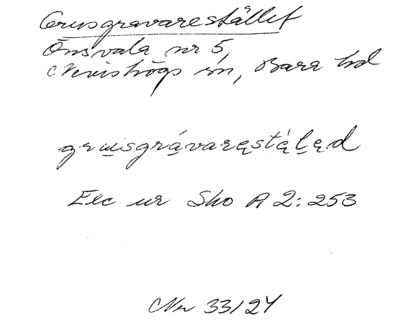 Grusgravarestället
Önsvala nr 5,
Nevishögs sn, Bara hd
grusgrávaręstálęd
Exc ur Sko A 2:253
Nr 33/24